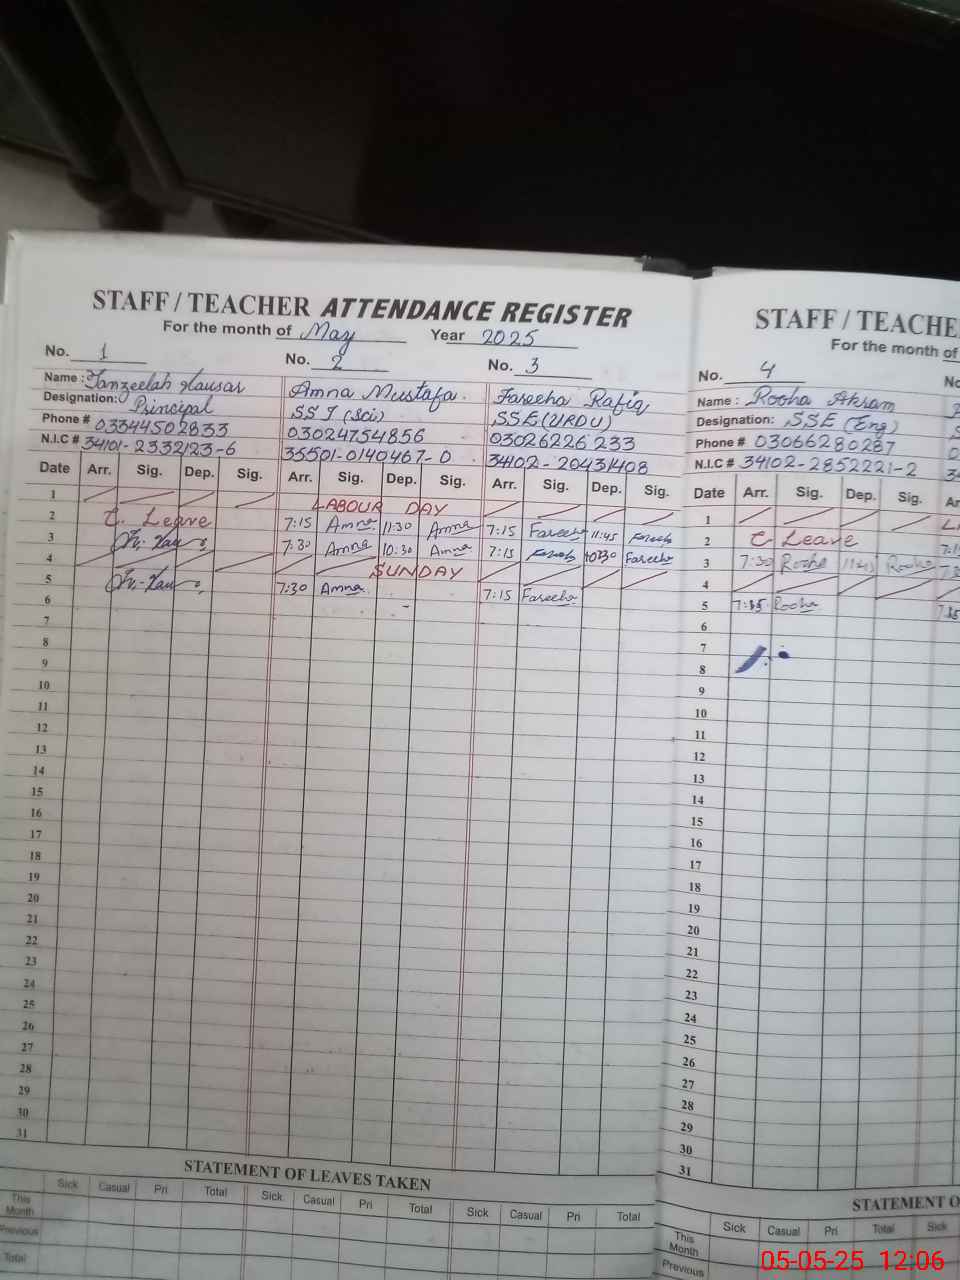 STAFF / TEACHER ATTENDANCE REGISTER
For the month of May Year 2025
No. 1 No. 2 No. 3
Name : Tanzeelah Kausar Amna Mustafa Fareeha Rafiq
Designation: Principal SST (Sci) SSE (URDU)
Phone # 03344502833 03024754856 03026226233
N.I.C # 34101-2332123-6 35501-0140467-0 34102-20431408
Date Arr. Sig. Dep. Sig. Arr. Sig. Dep. Sig. Arr. Sig. Dep. Sig.
1 LABOUR DAY
2 C. Leave 7:15 Amna 11:30 Amna 7:15 Fareeha 11:45 Fareeha
3 7:30 Amna 10:30 Amna 7:15 Fareeha 10:30 Fareeha
4 SUNDAY
5 7:30 Amna 7:15 Fareeha
6
7
8
9
10
11
12
13
14
15
16
17
18
19
20
21
22
23
24
25
26
27
28
29
30
31
STATEMENT OF LEAVES TAKEN
Sick Casual Pri Total Sick Casual Pri Total Sick Casual Pri Total
This Month
Previous
Total
STAFF / TEACHE
For the month of
No. 4 No
Name : Rooha Akram
Designation: SSE (Eng)
Phone # 03066280287
N.I.C # 34102-2852221-2
Date Arr. Sig. Dep. Sig. Ar
1
2 C Leave
3 7:30 Rooha Rooha
4
5 Rooha
6
7
8
9
10
11
12
13
14
15
16
17
18
19
20
21
22
23
24
25
26
27
28
29
30
31
STATEMENT O
Sick Casual Pri Total Sick
This Month
Previous
05-05-25 12:06